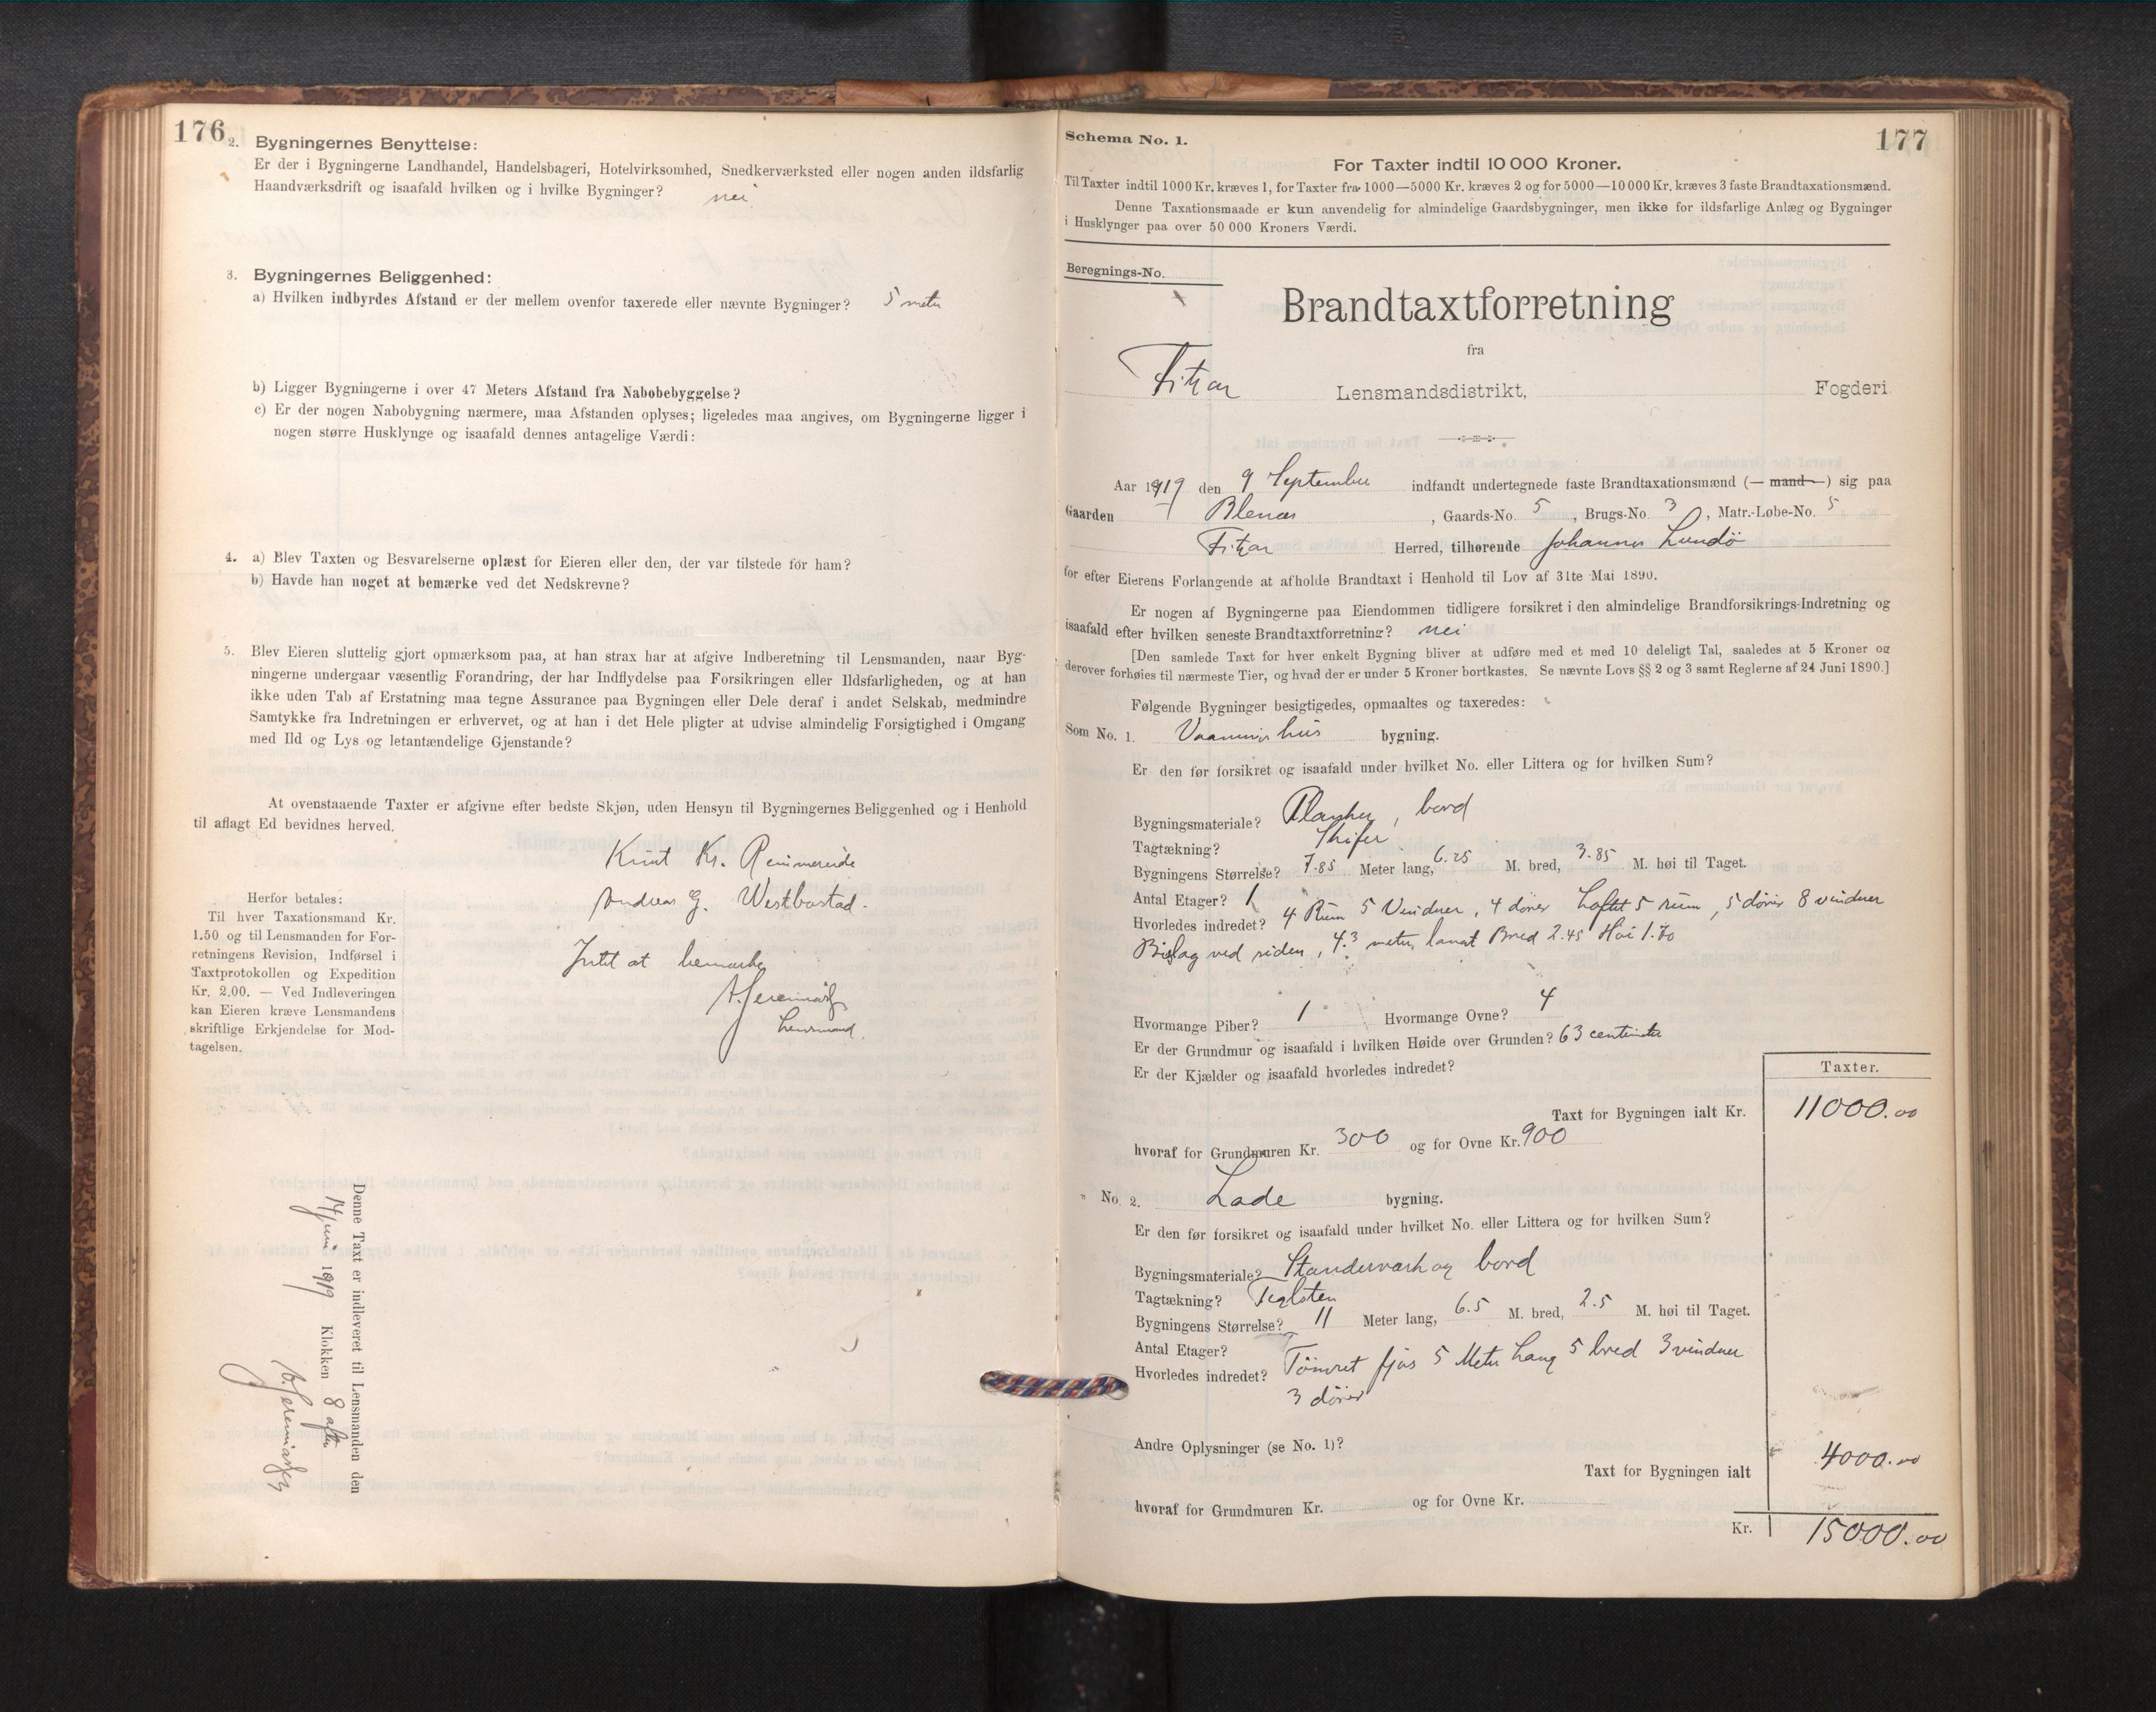 176
2. Bygningernes Benyttelse:
Er der i Bygningerne Landhandel, Handelsbageri, Hotelvirksomhed, Snedkerværksted eller nogen anden ildsfarlig
Haandværksdrift og isaafald hvilken og i hvilke Bygninger? nei
3. Bygningernes Beliggenhed:
a) Hvilken indbyrdes Afstand er der mellem ovenfor taxerede eller nævnte Bygninger? 5 meter
b) Ligger Bygningerne i over 47 Meters Afstand fra Nabobebyggelse?
c) Er der nogen Nabobygning nærmere, maa Afstanden oplyses; ligeledes maa angives, om Bygningerne ligger i
nogen større Husklynge og isaafald dennes antagelige Værdi:
4. a) Blev Taxten og Besvarelserne oplæst for Eieren eller den, der var tilstede for ham?
b) Havde han noget at bemærke ved det Nedskrevne?
5. Blev Eieren sluttelig gjort opmærksom paa, at han strax har at afgive Indberetning til Lensmanden, naar Byg-
ningerne undergaar væsentlig Forandring, der har Indflydelse paa Forsikringen eller Ildsfarligheden, og at han
ikke uden Tab af Erstatning maa tegne Assurance paa Bygningen eller Dele deraf i andet Selskab, medmindre
Samtykke fra Indretningen er erhvervet, og at han i det Hele pligter at udvise almindelig Forsigtighed i Omgang
med Ild og Lys og letantændelige Gjenstande?
At ovenstaaende Taxter er afgivne efter bedste Skjøn, uden Hensyn til Bygningernes Beliggenhed og i Henhold
til aflagt Ed bevidnes herved.
Knut Kr. Rimmereide
Andreas G. Westbøstad.
Intet at bemærke
A. Jeremiassen
Lensmand.
Herfor betales:
Til hver Taxationsmand Kr.
1.50 og til Lensmanden for For-
retningens Revision, Indførsel i
Taxtprotokollen og Expedition
Kr. 2.00. — Ved Indleveringen
kan Eieren kræve Lensmandens
skriftlige Erkjendelse for Mod-
tagelsen.
Denne Taxt er indleveret til Lensmanden den
14 juni 1919 Klokken 8 aften
A. Jeremiassen
177
Schema No. 1.
For Taxter indtil 10 000 Kroner.
Til Taxter indtil 1000 Kr. kræves 1, for Taxter fra 1000—5000 Kr. kræves 2 og for 5000—10 000 Kr. kræves 3 faste Brandtaxationsmænd.
Denne Taxationsmaade er kun anvendelig for almindelige Gaardsbygninger, men ikke for ildsfarlige Anlæg og Bygninger
i Husklynger paa over 50 000 Kroners Værdi.
Beregnings-No.
Brandtaxtforretning
fra
Fitjar Lensmandsdistrikt, Fogderi.
Aar 1919 den 9 September indfandt undertegnede faste Brandtaxationsmænd (— mand —) sig paa
Gaarden Blenæs, Gaards-No. 5, Brugs-No. 3, Matr.-Løbe-No. 5
Fitjar Herred, tilhørende Johannes Lundø
for efter Eierens Forlangende at afholde Brandtaxt i Henhold til Lov af 31te Mai 1890.
Er nogen af Bygningerne paa Eiendommen tidligere forsikret i den almindelige Brandforsikrings-Indretning og
isaafald efter hvilken seneste Brandtaxtforretning? nei
[Den samlede Taxt for hver enkelt Bygning bliver at udføre med et med 10 deleligt Tal, saaledes at 5 Kroner og
derover forhøies til nærmeste Tier, og hvad der er under 5 Kroner bortkastes. Se nævnte Lovs §§ 2 og 3 samt Reglerne af 24 Juni 1890.]
Følgende Bygninger besigtigedes, opmaaltes og taxeredes:
Som No. 1. Vaaningshus bygning.
Er den før forsikret og isaafald under hvilket No. eller Littera og for hvilken Sum?
Bygningsmateriale? Planker, bord
Tagtækning? Skifer
Bygningens Størrelse? 7.85 Meter lang, 6.25 M. bred, 3.85 M. høi til Taget.
Antal Etager? 1
Hvorledes indredet? 4 Rum 5 Vinduer, 4 dører Loftet 5 rum, 5 dører 8 vinduer
Bislag ved siden, 4.3 meter langt Bred 2.45 Høi 1.70
Hvormange Piber? 1 Hvormange Ovne? 4
Er der Grundmur og isaafald i hvilken Høide over Grunden? 63 centimeter
Er der Kjælder og isaafald hvorledes indredet?
Taxter.
Taxt for Bygningen ialt Kr. 11000.00
hvoraf for Grundmuren Kr. 300 og for Ovne Kr. 900
" No. 2. Lade bygning.
Er den før forsikret og isaafald under hvilket No. eller Littera og for hvilken Sum?
Bygningsmateriale? Standerværk og bord
Tagtækning? Teglsten
Bygningens Størrelse? 11 Meter lang, 6.5 M. bred, 2.5 M. høi til Taget.
Antal Etager?
Hvorledes indredet? Tømret fjøs 5 Meter Lang 5 bred 3 vinduer
3 dører
Andre Oplysninger (se No. 1)?
Taxt for Bygningen ialt 4000.00
hvoraf for Grundmuren Kr. og for Ovne Kr.
Kr. 15000.00